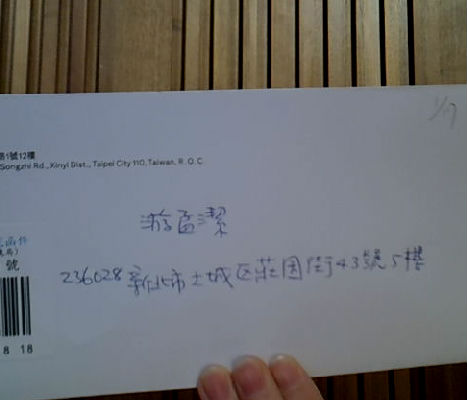 1/17
路1號12樓
Songzhi Rd., Xinyi Dist., Taipei City 110, Taiwan, R.O.C
游孟潔
236028 新北市土城區莊園街43號5樓
號
8 18